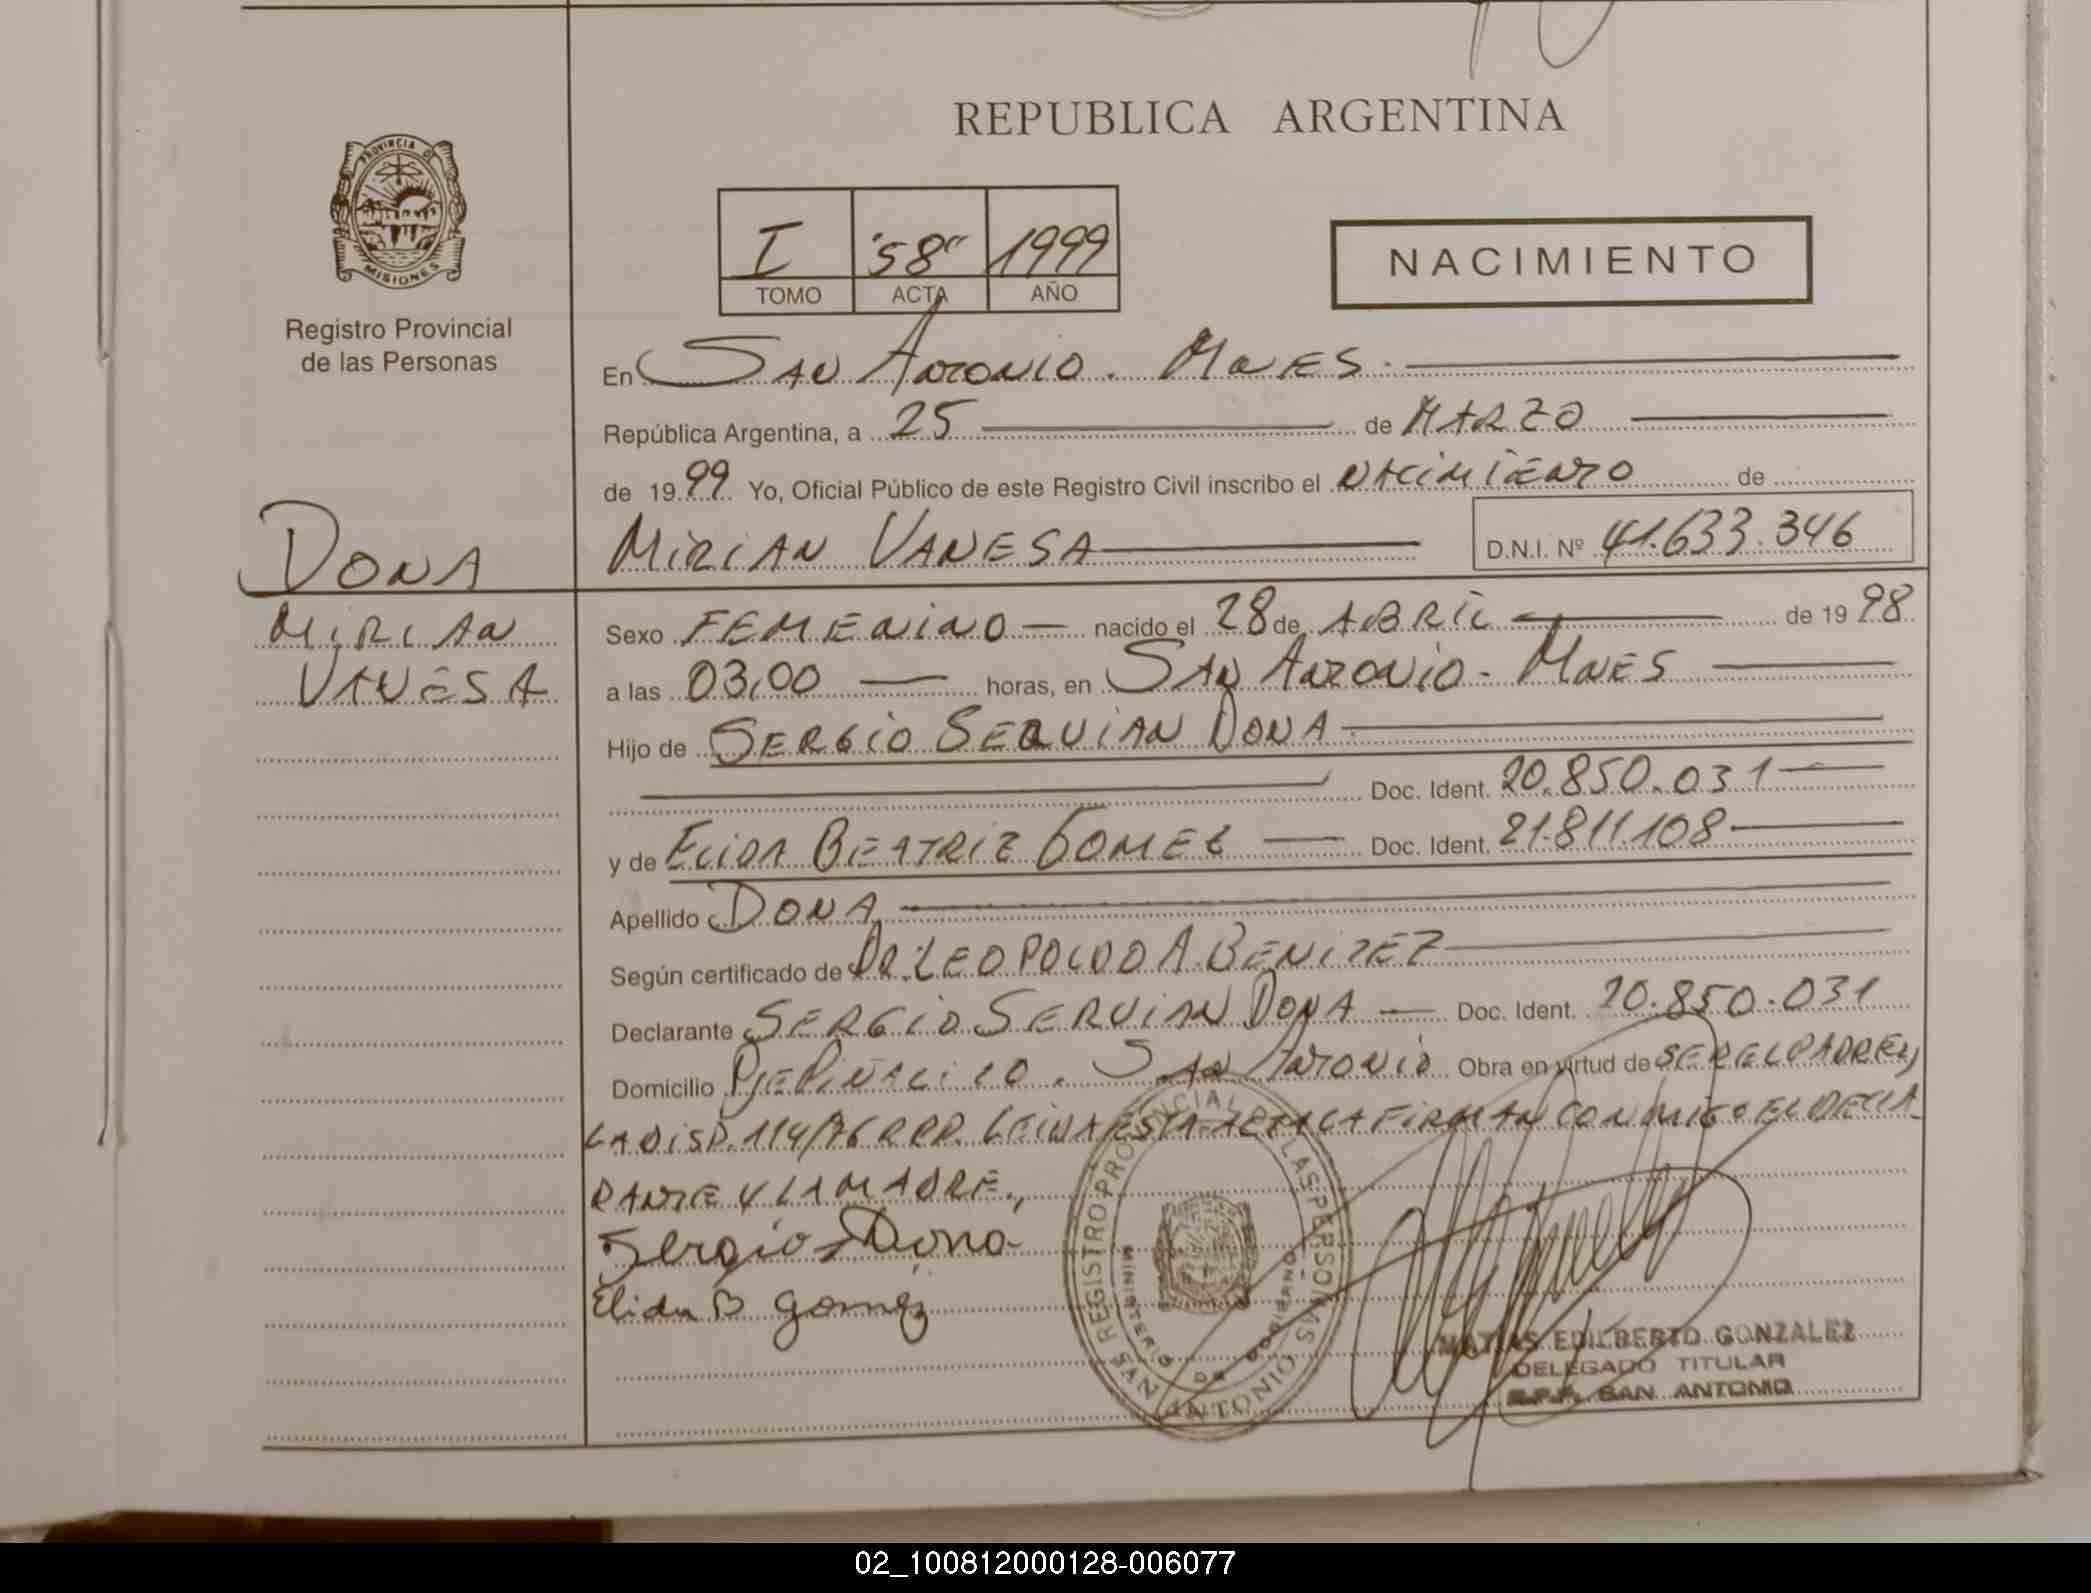 REPUBLICA ARGENTINA
PROVINCIA D
MISIONES
Registro Provincial
de las Personas
I "58" 1999
TOMO ACTA AÑO
NACIMIENTO
En SAN ANTONIO. MNES.
República Argentina, a 25 de MARZO
de 1999 Yo, Oficial Público de este Registro Civil inscribo el NACIMIENTO de
DONA
MIRIAN VANESA
D.N.I. Nº 41.633.346
MIRIAN
VANESA
Sexo FEMENINO nacido el 28 de ABRIL de 1998
a las 03,00 horas, en SAN ANTONIO - MNES
Hijo de SERGIO SERVIAN DONA
Doc. Ident. 20.850.031
y de ELIDA BEATRIZ GOMEZ Doc. Ident. 21.811.108
Apellido DONA
Según certificado de DR. LEOPOLDO A. BENITEZ
Declarante SERGIO SERVIAN DONA Doc. Ident. 20.850.031
Domicilio PJE PIÑALITO. SAN ANTONIO Obra en virtud de SER EL PADRE Y
LA DISP. 114/76 R.P.P. LEIDA ESTA ACTA LA FIRMAN CONMIGO EL DECLA
RANTE Y LA MADRE.,
Sergio Dona
Elida B gomez
REGISTRO PROVINCIAL LAS PERSONAS
MINISTERIO DE GOBIERNO
SAN ANTONIO MS
MATIAS EDILBERTO GONZALEZ
DELEGADO TITULAR
R.P.P. SAN ANTONIO
02_100812000128-006077